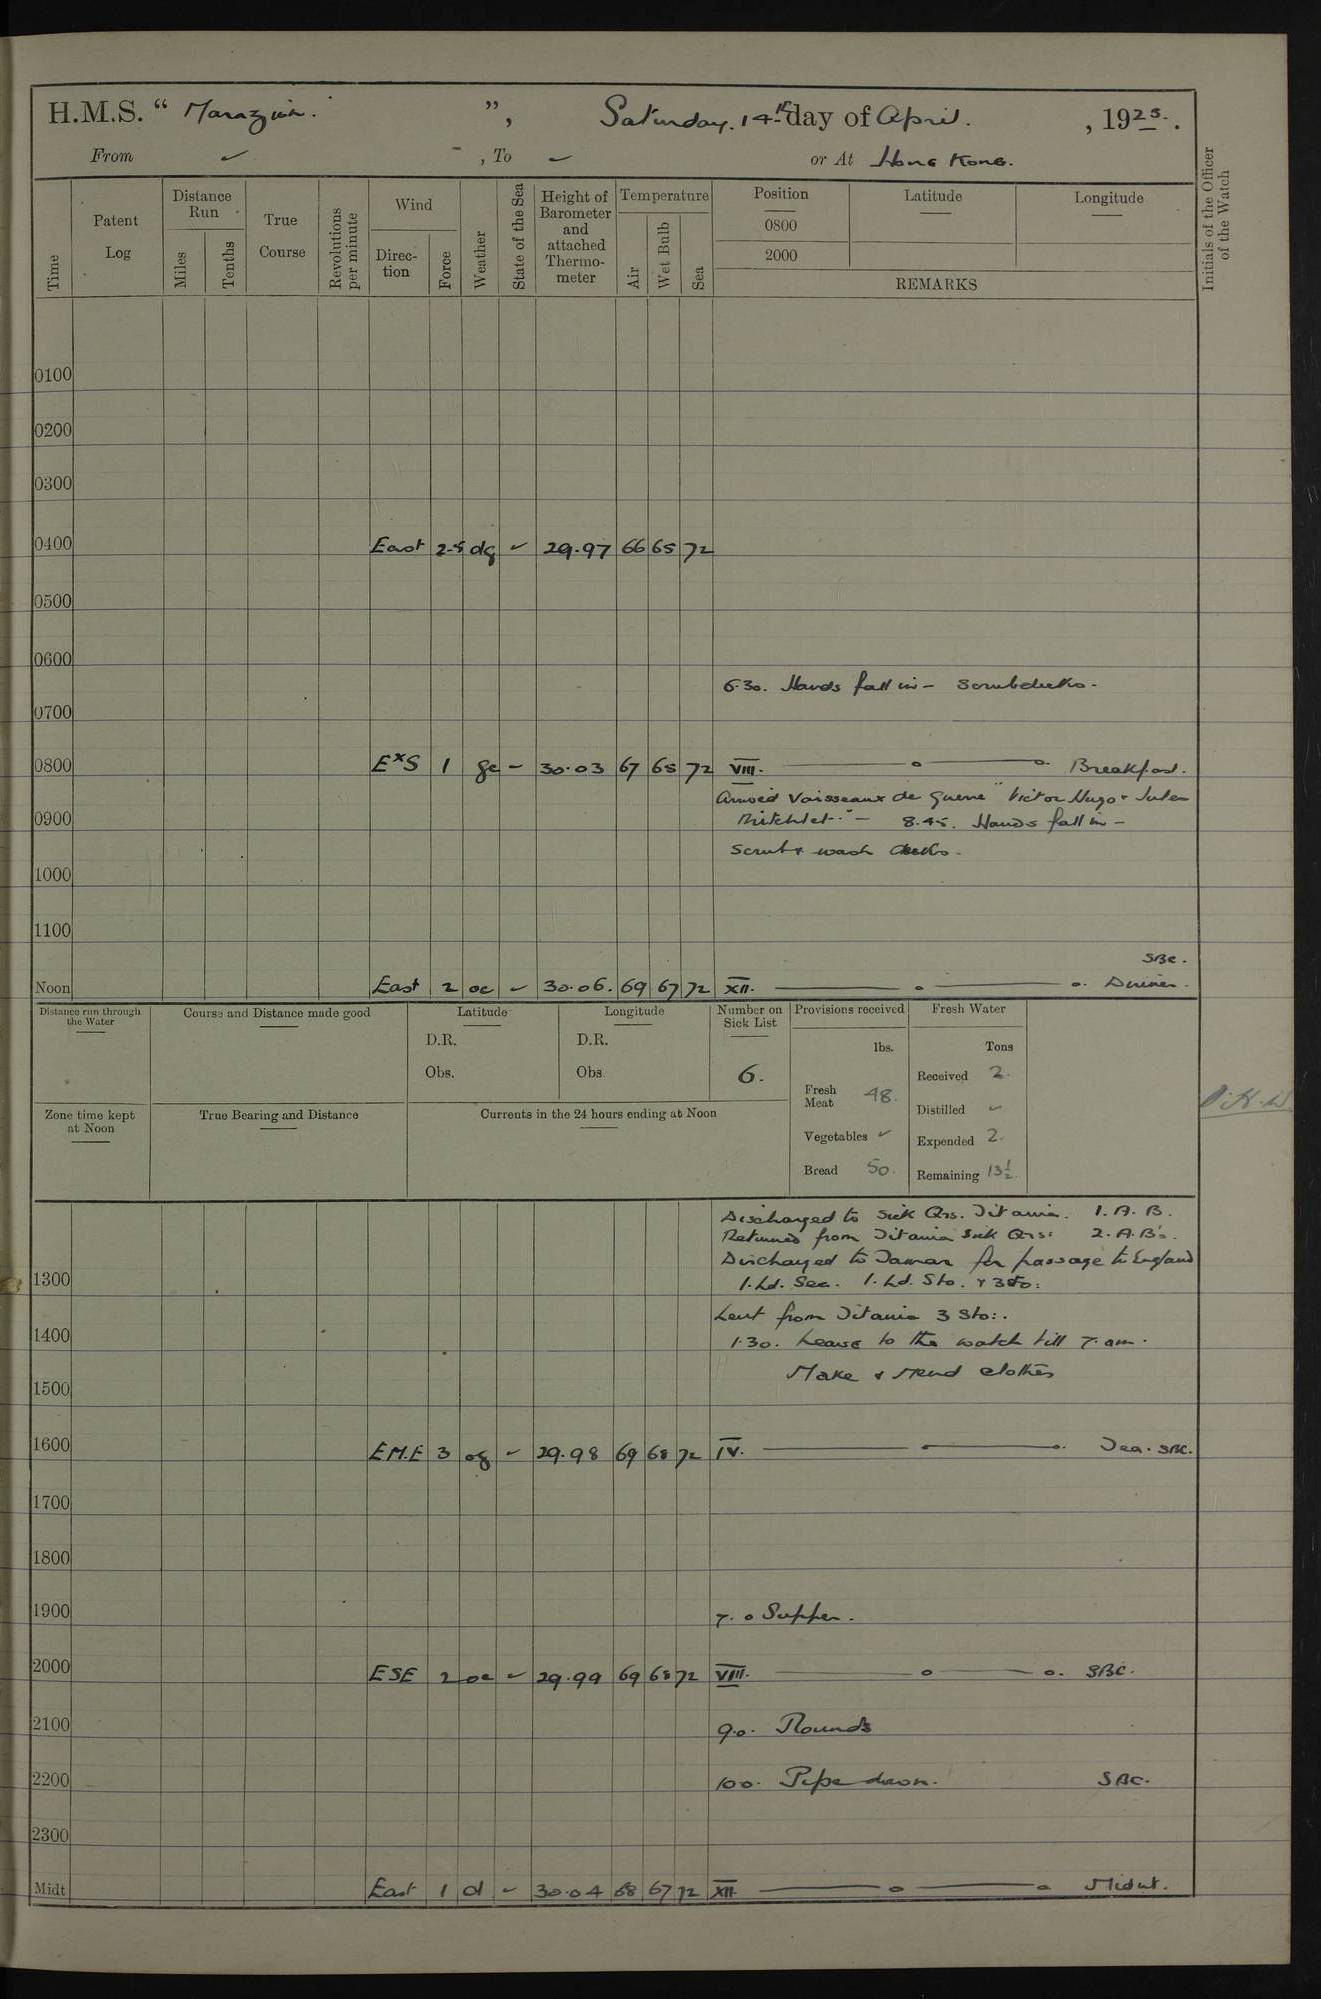 H.M.S. “ Marazion. ”, Saturday. 14th day of April. , 1923.
From ✓ , To ✓ or At Hong Kong.
Time
Patent Log
Distance Run
Miles
Tenths
True Course
Revolutions per minute
Wind
Direction
Force
Weather
State of the Sea
Height of Barometer and attached Thermometer
Temperature
Air
Wet Bulb
Sea
Position
0800
2000
Latitude
Longitude
REMARKS
Initials of the Officer of the Watch
0100
0200
0300
0400 East 2-5 dg ✓ 29.97 66 65 72
0500
0600
6.30. Hands fall in - Scrub decks -
0700
0800 ExS 1 gc - 30.03 67 65 72 VIII. Breakfast.
Arrived Vaisseaux de Guerre "Victor Hugo & Jules
Mitchlet." - 8.45. Hands fall in -
0900
Scrub & wash decks -
1000
1100
SBC.
Noon East 2 oc ✓ 30.06. 69 67 72 XII. Dinner.
Distance run through the Water
Course and Distance made good
Latitude
D.R.
Obs.
Longitude
D.R.
Obs.
Number on Sick List
6.
Zone time kept at Noon
True Bearing and Distance
Currents in the 24 hours ending at Noon
Provisions received
lbs.
Fresh Meat 48.
Vegetables ✓
Bread 50.
Fresh Water
Tons
Received 2.
Distilled ✓
Expended 2.
Remaining 13½.
Discharged to Sick Qrs. Titania. 1. A. B.
Returned from Titania Sick Qrs: 2. A.B's.
Discharged to Tamar for passage to England
1300 1. Ld. Sea. 1. Ld. Sto. & 3 Sto:
Lent from Titania 3 Sto:.
1400 1.30. Leave to the watch till 7. am.
Make & Mend clothes
1500
1600 E.N.E 3 og ✓ 29.98 69 68 72 IV. Tea. SBC.
1700
1800
1900 7. 0 Supper.
2000 ESE 2 oc ✓ 29.99 69 68 72 VIII. SBC.
2100 9.0. Rounds
2200 10.0. Pipe down. SBC.
2300
Midt East 1 d ✓ 30.04 68 67 72 XII. Midnt.